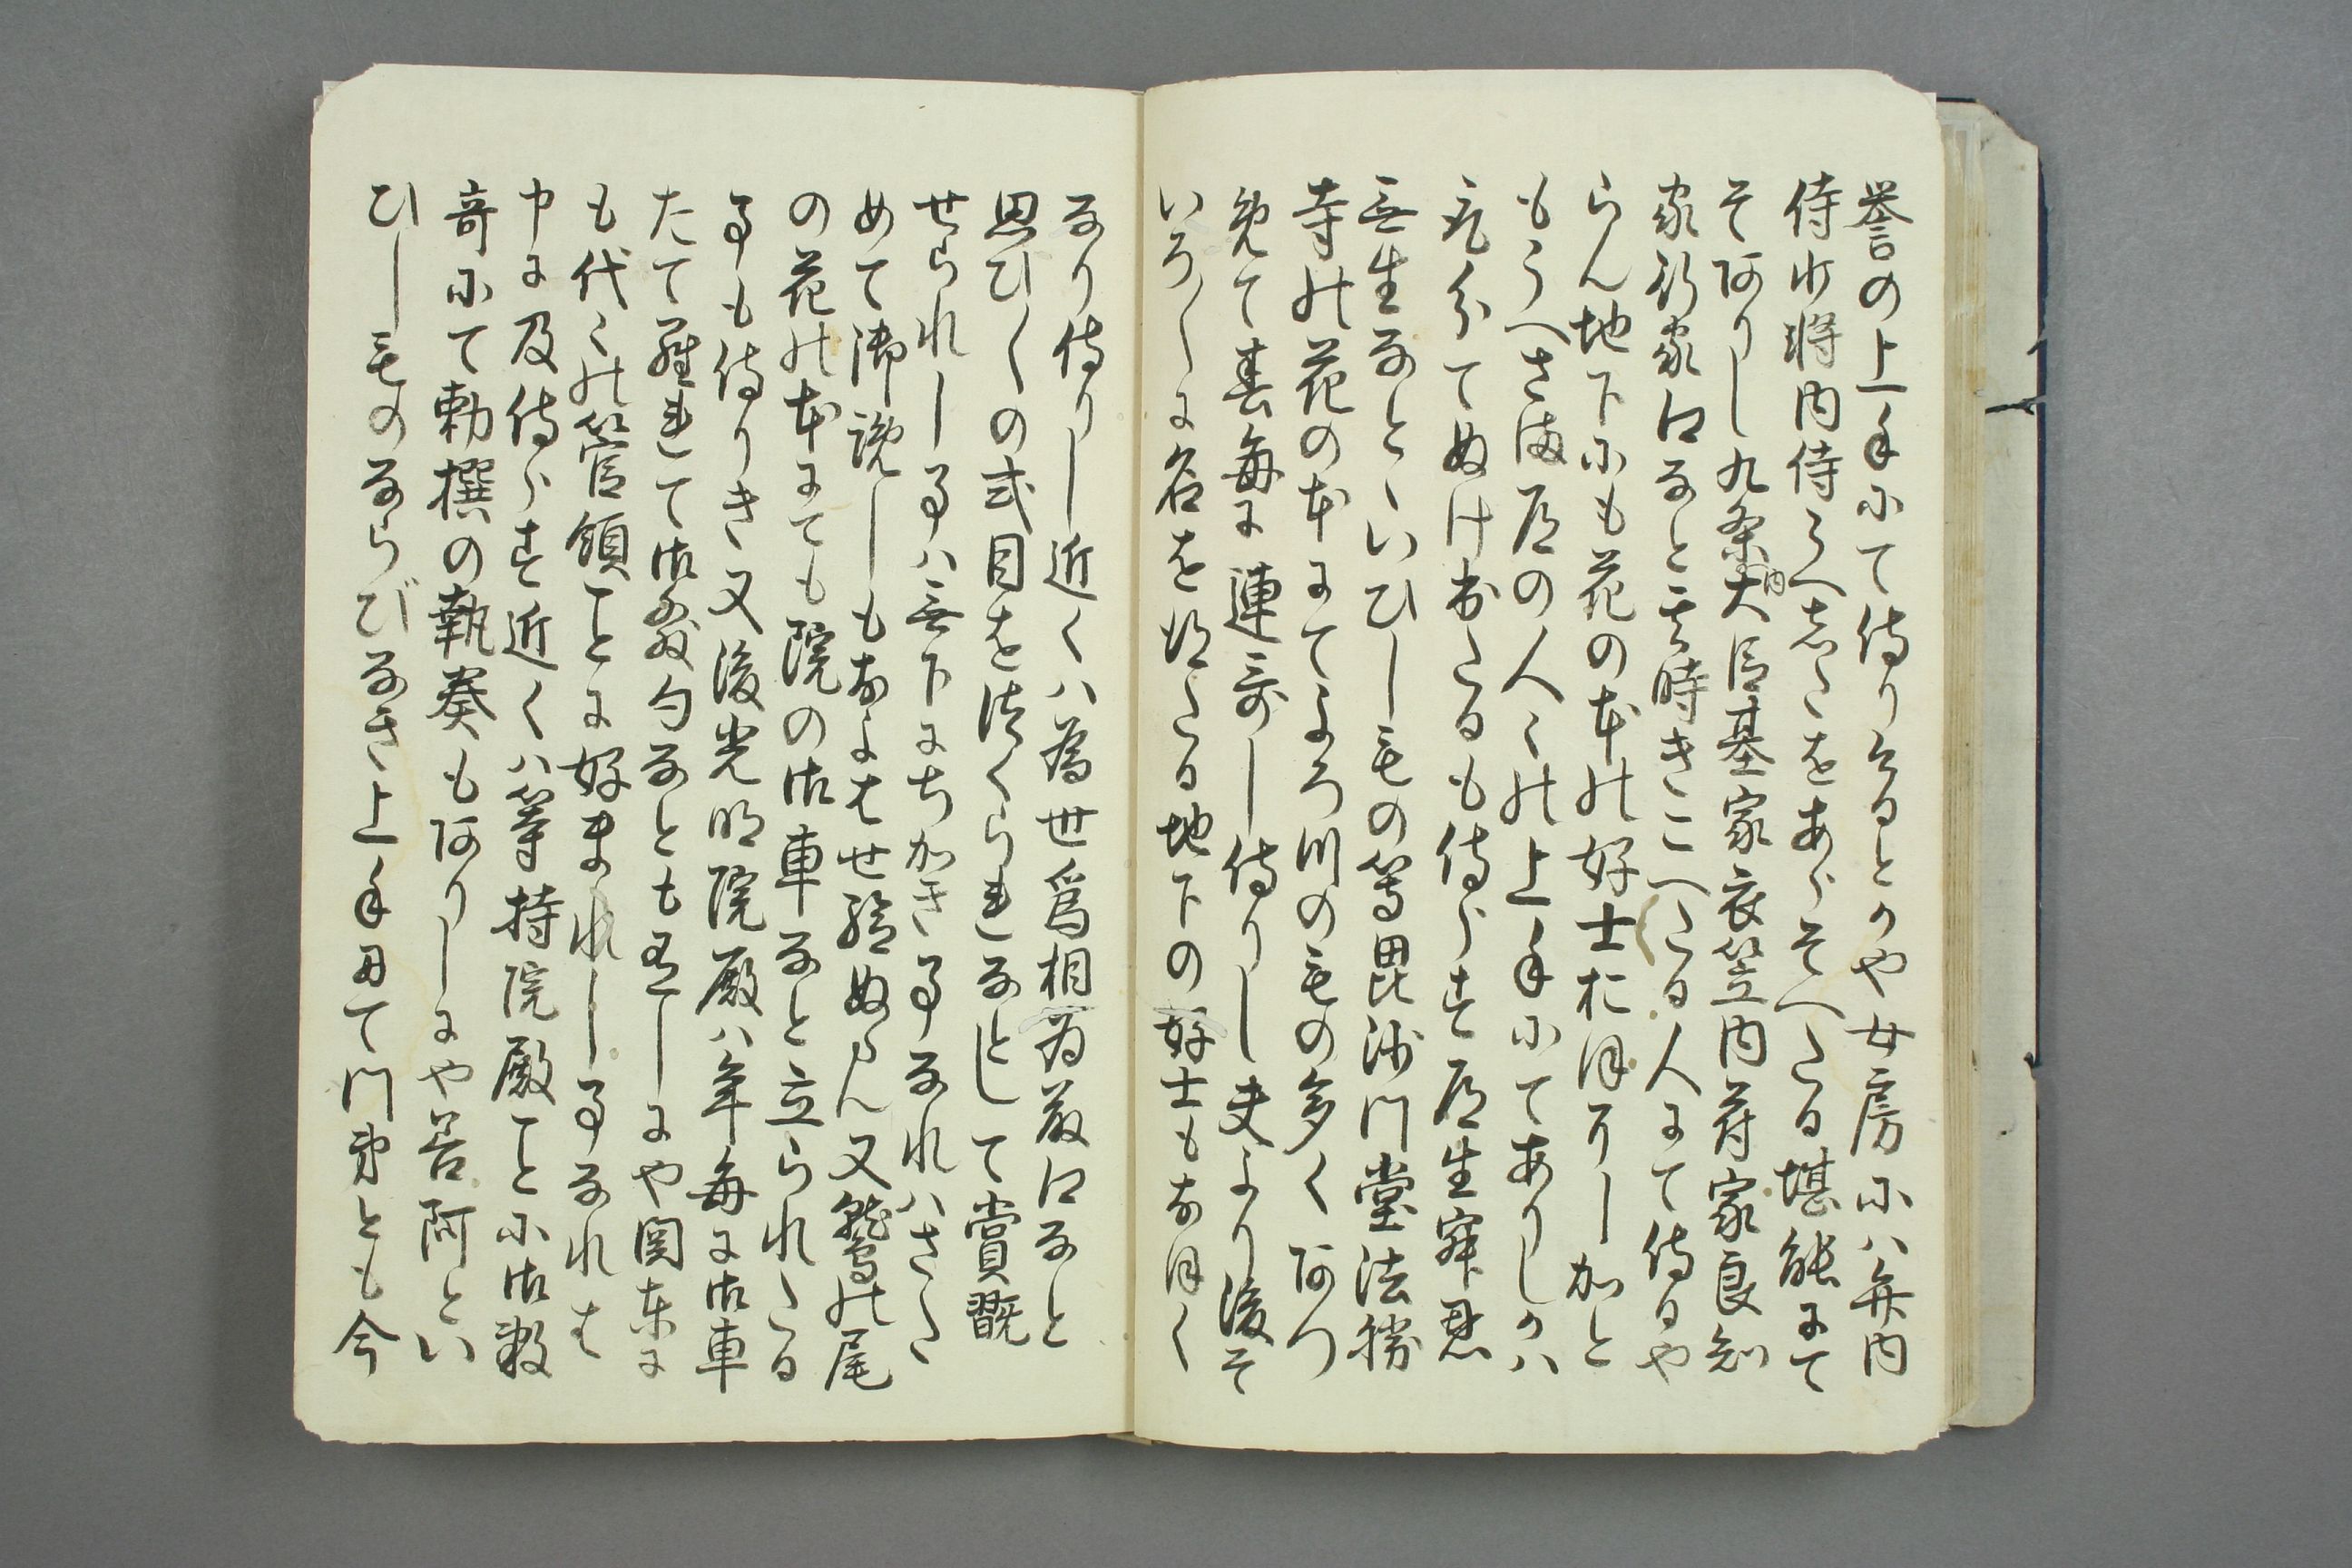 誉の上手にて侍りけるとかや女房には弁内
侍少将内侍うへしたをあらそへたる堪能にて
そありし九条内大臣基家衣笠内府家良知
家行家卿なと云時きこへたる人にて侍るや
らん地下にも花の本の好士おほりしかと
もうへさま殿の人々の上手にてありしかは
取分てぬけ出たるも侍らす道生寂忍
無生なといひしもの等毘沙門堂法勝
寺の花の本にてよろ川のもの多くあつ
めて春毎に連哥し侍りし夫より後そ
いろ〱に名を得たる地下の好士もおほく
なり侍りし近くハ為世為相為藤卿なと
思ひ〱の式目をつくられなとして賞翫
せられし事ハ無下にちかき事なれハさた
めて御説しもおよはせ給ぬらん又鷲の尾
の花の本にても院の御車なと立られたる
事も侍りき又後光明院殿ハ年毎に御車
たて〻御発句なとも有しにや関東に
も代々の管領ことに好まれし事なれは
申に及侍らす近くハ等持院殿ことに御数
奇にて勅撰の執奏もありしにや善阿とい
ひしものならびなき上手にて門弟とも今